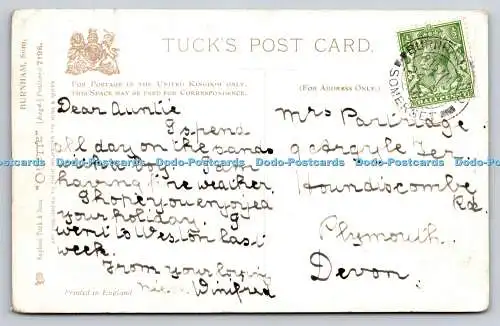 TUCK'S POST CARD.
FOR POSTAGE IN THE UNITED KINGDOM ONLY,
THIS SPACE MAY BE USED FOR CORRESPONDENCE.
(FOR ADDRESS ONLY.)
BURNHAM, Som.
"OILETTE" [Regd.] Postcard 7198.
Raphael Tuck & Sons
Dear Auntie
I spend
all day on the sands
having fine weather.
I hope you enjoyed
your holiday
went to Weston last
week.
From your loving
Winifred
Mrs Partridge
9 Argyle Ter
Houndiscombe
Rd.
Plymouth.
Devon.
Printed in England
BURNHAM
SOMERSET
Dodo-Postcards Dodo-Postcards Dodo-Postcards Dodo-Postcards Dodo-Postcards